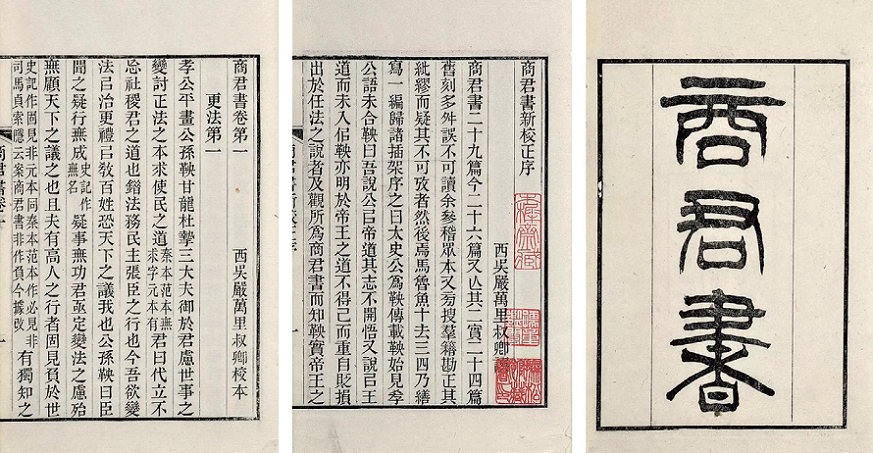 商君書
商君書新校正序
西吳嚴萬里叔卿
商君書二十九篇今二十六篇又亾其二實二十四篇
舊刻多舛誤不可讀余參稽眾本又旁搜羣籍勘正其
紕繆而疑其不可攷者然後焉馬魯魚十去三四乃繕
寫一編歸諸插架序之曰太史公為鞅傳載鞅始見孝
公語未合鞅曰吾說公㠯帝道其志不開悟又說㠯王
道而未入佀鞅亦明於帝王之道不得已而重自貶損
出於任法之說者及觀所為商君書而知鞅實帝王之
商君書卷第一 西吳嚴萬里叔卿校本
更法第一
孝公平畫公孫鞅甘龍杜摯三大夫御於君慮世事之
變討正法之本求使民之道秦本范本無求字元本有君曰代立不
忘社稷君之道也錯法務民主張臣之行也今吾欲變
法㠯治更禮㠯教百姓恐天下之議我也公孫鞅曰臣
聞之疑行無成史記作無名疑事無功君亟定變法之慮殆
無顧天下之議之也且夫有高人之行者固見負於世
史記作固見非元本同秦本范本作必見非司馬貞索隱云案商君書非作負今據改有獨知之